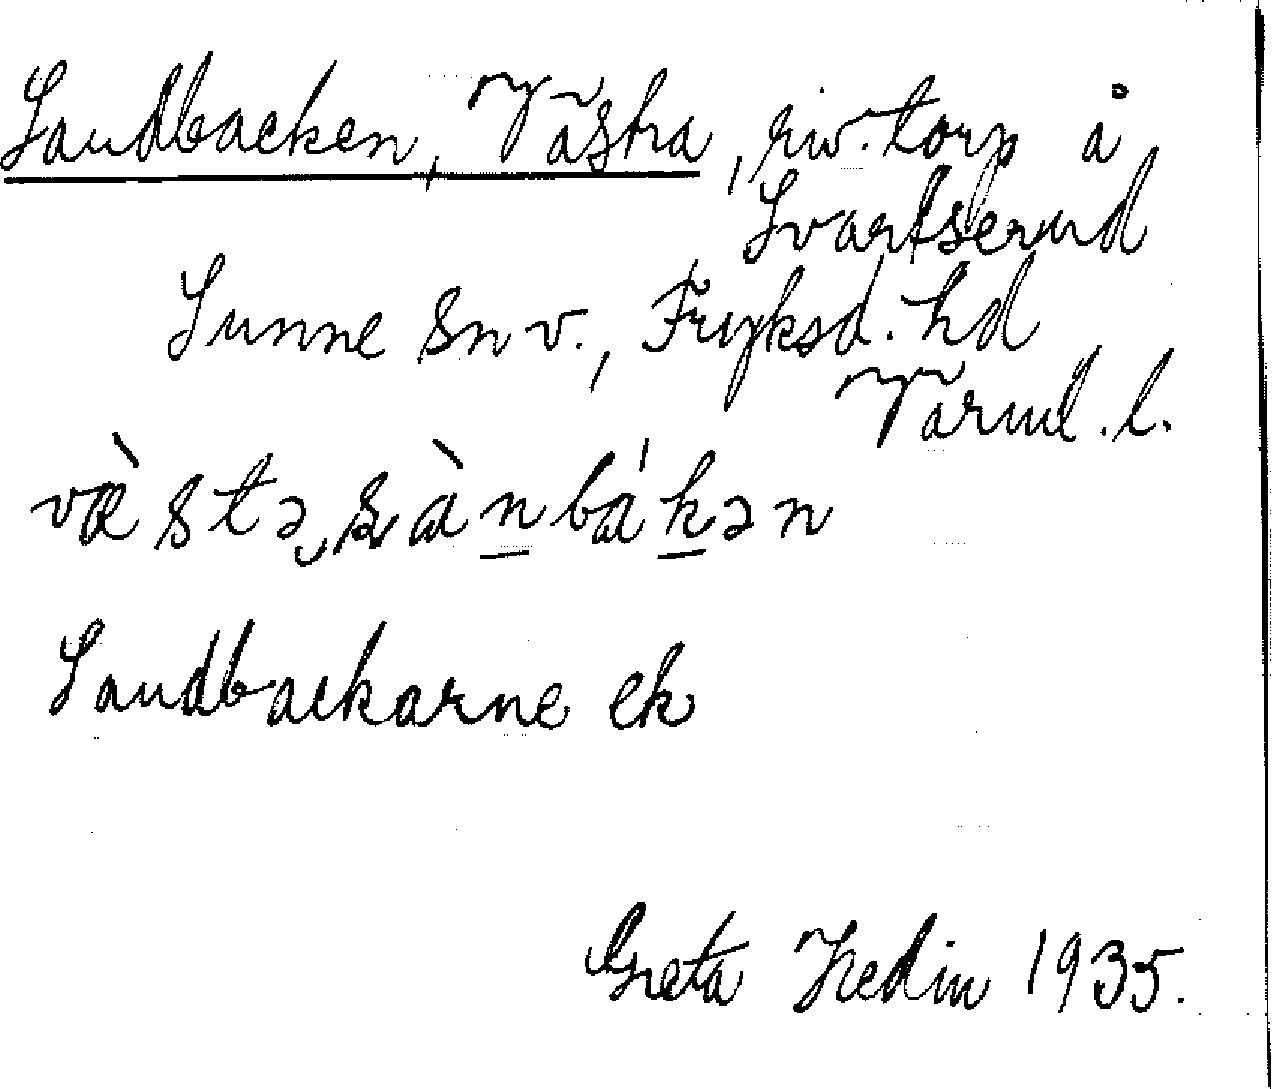 Sandbacken, Västra, riv. torp å
Svartserud
Sunne sn v., Fryksd. hd
Värml. l.
væ̀stə sànbákən
Sandbackarne ek
Greta Hedin 1935.